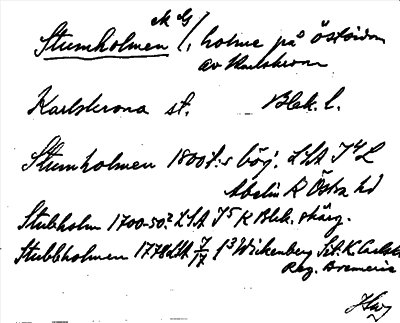 M G
Stumholmen /, holme på Östsidan
av Karlskrona
Karlskrona st. Blek. l.
Stumholmen 1800 t:s börj. LSA J4 L
Abelin R Östra hd
Stubholm 1700-50? LSA J5 K Blek. skärg.
Stubbholmen 1778 LSA 7/17 f3 Wickenberg Sit. K Carlskr
Reg. Bremeria